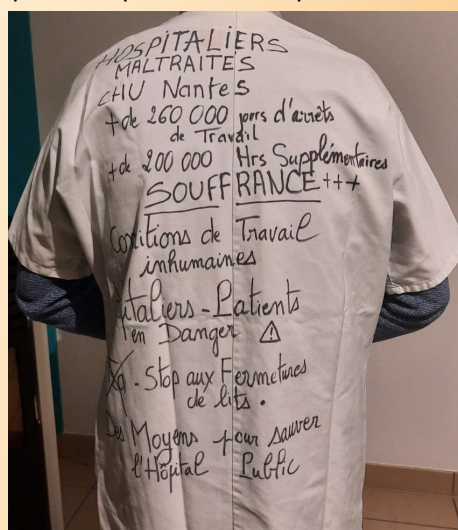 HOSPITALIERS
MALTRAITÉS
CHU Nantes
+ de 260 000 jours d'arrêts
de Travail
+ de 200 000 Hrs Supplémentaires
SOUFFRANCE +++
Conditions de Travail
inhumaines
pitaliers - Patients
en Danger ⚠
- Stop aux Fermetures
de lits.
Des Moyens pour sauver
l'Hôpital Public